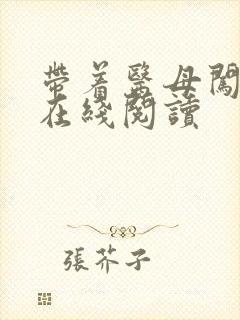 帶着醫母闖
在綫閱讀
張芥子